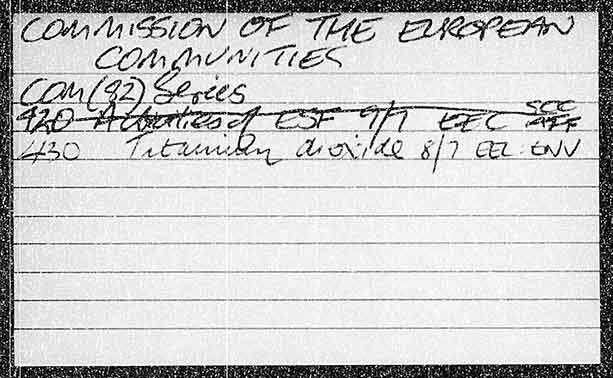 COMMISSION OF THE EUROPEAN
COMMUNITIES
COM(82) Series
420 Activities of ESF 9/7 EEC SCC AFF
430 Titanium dioxide 8/7 EEC ENV